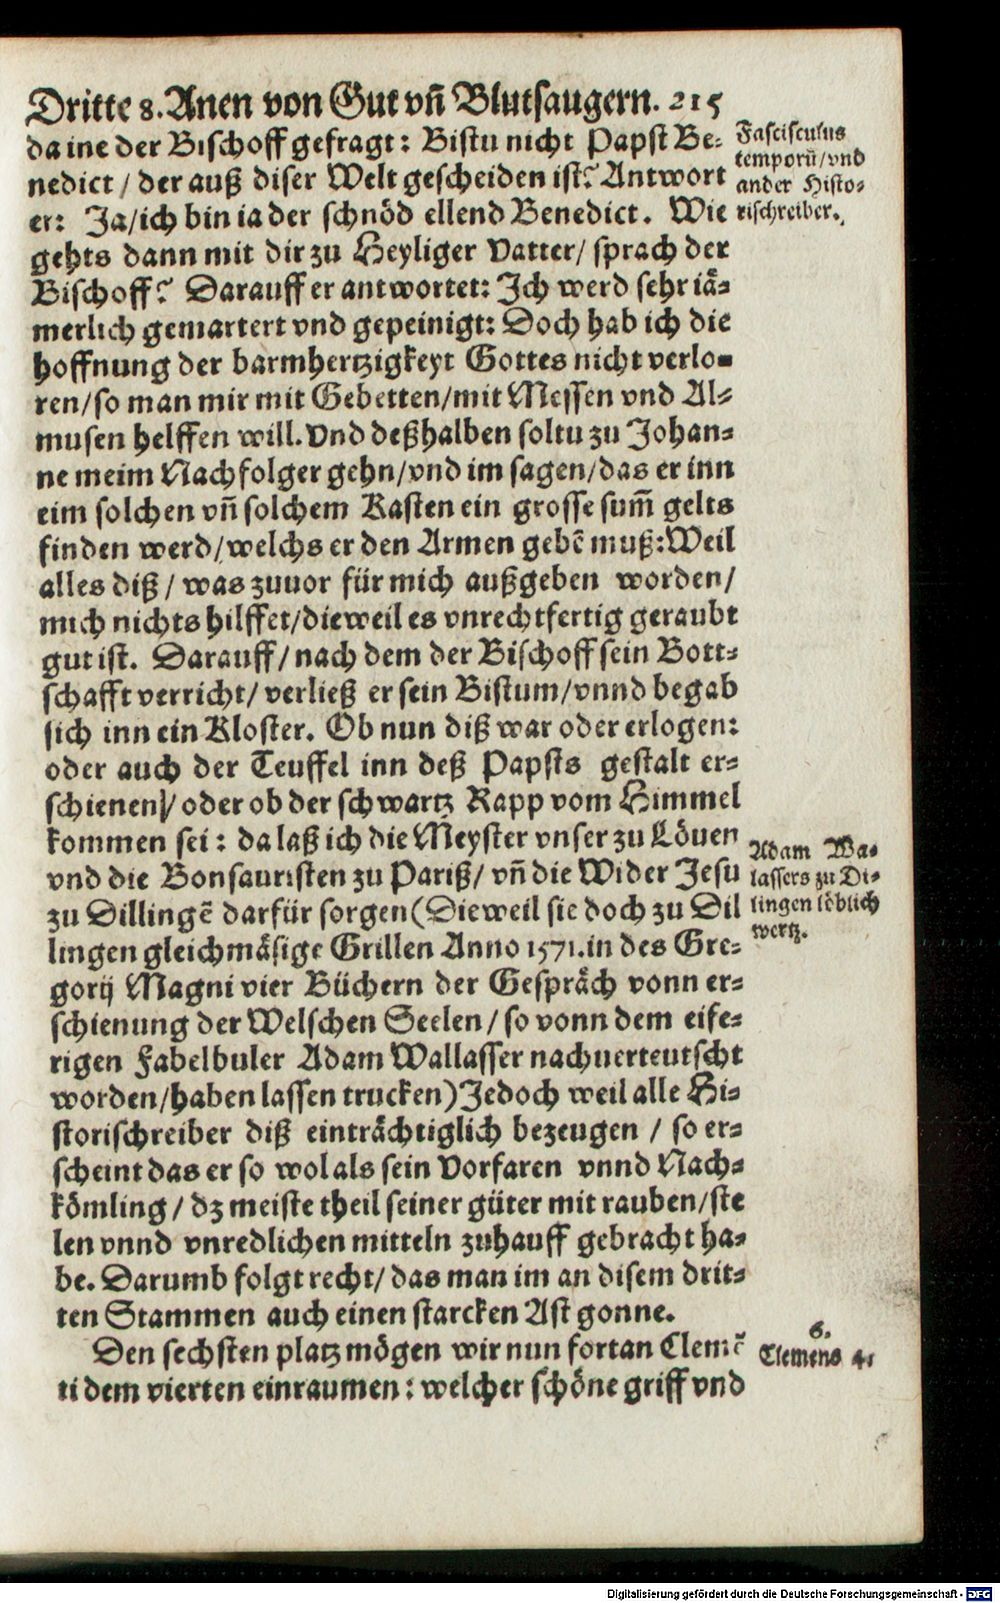 Dritte 8. Anen von Gut vñ Blutsaugern. 215
da ine der Bischoff gefragt: Bistu nicht Papst Be-
nedict / der auß diser Welt gescheiden ist? Antwort
er: Ja/ich bin ia der schnöd ellend Benedict. Wie
gehts dann mit dir zu Heyliger Vatter/ sprach der
Bischoff? Darauff er antwortet: Ich werd sehr iä-
merlich gemartert vnd gepeinigt: Doch hab ich die
hoffnung der barmhertzigkeyt Gottes nicht verlo-
ren/so man mir mit Gebetten/mit Messen vnd Al-
musen helffen will. Vnd deßhalben soltu zu Johan-
ne meim Nachfolger gehn/vnd im sagen/das er inn
eim solchen vñ solchem Kasten ein grosse sum̃ gelts
finden werd/welchs er den Armen gebẽ muß: Weil
alles diß / was zuuor für mich außgeben worden/
mich nichts hilffet/dieweil es vnrechtfertig geraubt
gut ist. Darauff/ nach dem der Bischoff sein Bott-
schafft verricht/ verließ er sein Bistum/vnnd begab
sich inn ein Kloster. Ob nun diß war oder erlogen:
oder auch der Teuffel inn deß Papsts gestalt er-
schienen/ oder ob der schwartz Rapp vom Himmel
kommen sei: da laß ich die Meyster vnser zu Löuen
vnd die Bonsauristen zu Pariß/ vñ die Wider Jesu
zu Dillingẽ darfür sorgen (Dieweil sie doch zu Dil
lingen gleichmäsige Grillen Anno 1571. in des Gre-
gorij Magni vier Büchern der Gespräch vonn er-
schienung der Welschen Seelen/ so vonn dem eife-
rigen Fabelbuler Adam Wallasser nachuerteutscht
worden/haben lassen trucken) Jedoch weil alle Hi-
storischreiber diß einträchtiglich bezeugen / so er-
scheint das er so wol als sein Vorfaren vnnd Nach-
kömling / dz meiste theil seiner güter mit rauben/ste
len vnnd vnredlichen mitteln zuhauff gebracht ha-
be. Darumb folgt recht/ das man im an disem drit-
ten Stammen auch einen starcken Ast gonne.
Den sechsten platz mögen wir nun fortan Clemẽ
ti dem vierten einraumen: welcher schöne griff vnd
Fascisculus
temporũ/vnd
ander Histo-
rischreiber.
Adam Wa-
lassers zu Di-
lingen löblich
wertz.
6.
Clemens 4.
Digitalisierung gefördert durch die Deutsche Forschungsgemeinschaft - DFG